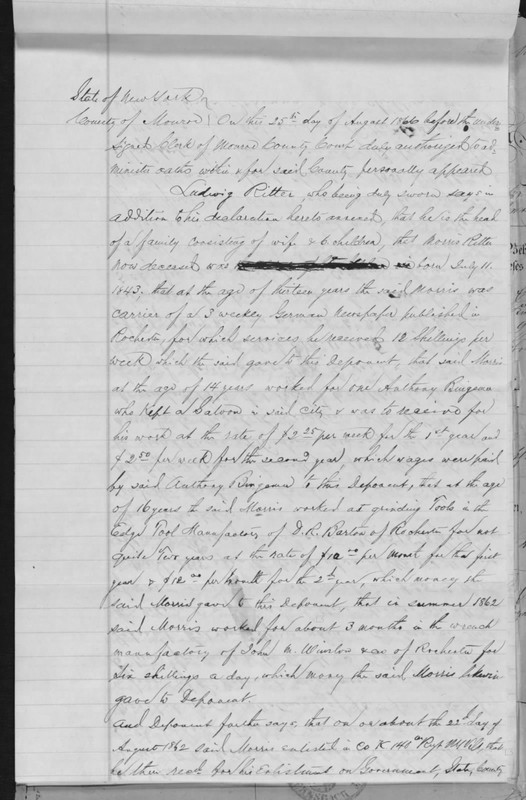 State of New York
County of Monroe } On this 25th day of August 1866 before the under
Signed Clerk of Monroe County Court duly authorized to ad
minister oaths within & for said County personally appeared
Ludwig Ritter, who being duly sworn says in
addition to his declaration hereto annexed, that he is the head
of a family consisting of wife & 6 children, that Morris Ritter
now deceased was born July 11.
1843. that at the age of thirteen years the said Morris was
carrier of a 3 weekly German Newspaper published in
Rochester, for which services he received 12 Shillings per
week which the said gave to this Deponent, that said Morris
at the age of 14 years worked for one Anthony Bingeman
who kept a Saloon in said city & was to receive for
his work at the rate of $2.25 per week for the 1st year and
$2.50 per week for the second year, which wages were paid
by said Anthony Bingeman to this Deponent, that at the age
of 16 years the said Morris worked at grinding Tools in the
Edge Tool Manufactory of D. R. Barton of Rochester for not
quite Two years at the rate of $10.00 per Month for the first
year & $12.00 per Month for the 2d year, which money the
said Morris gave to this Deponent, that in summer 1862
said Morris worked for about 3 months in the wrench
manufactory of John M. Winslow & co of Rochester for
six shillings a day, which money the said Morris likewise
gave to Deponent.
And Deponent further says, that on or about the 22d day of
August 1862 said Morris enlisted in Co K 141st Regt NYVols, that
he then recd for his Enlistment on Government, State, County